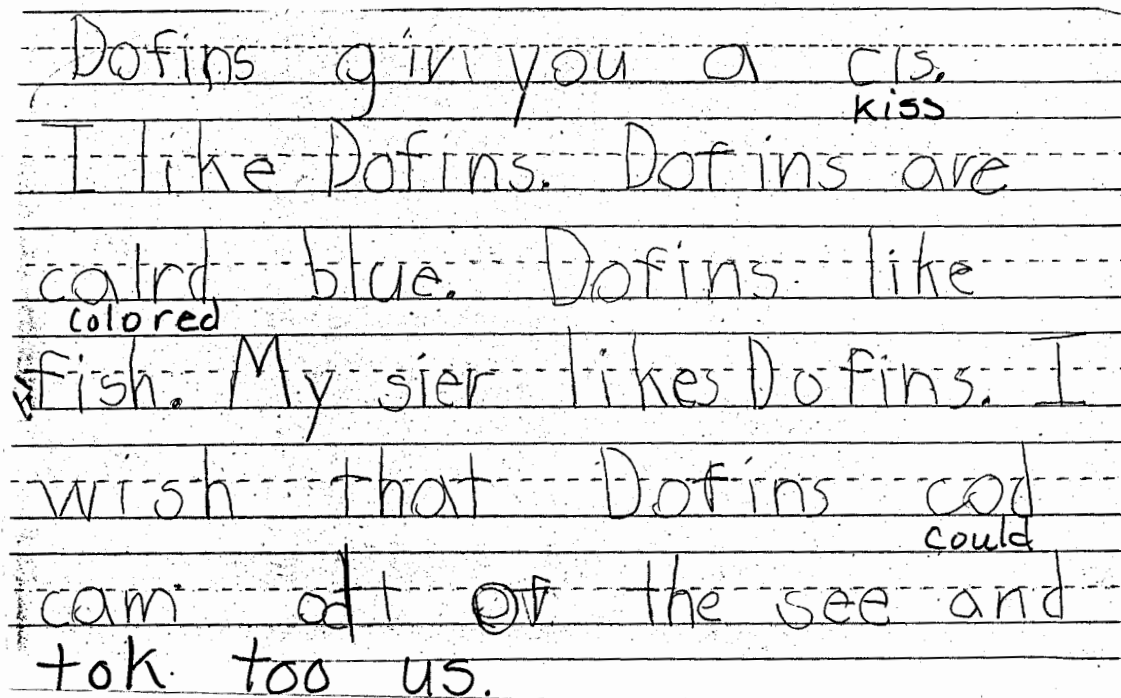 Dofins giv you a cis.
kiss
I like Dofins. Dofins are
calrd blue. Dofins like
colored
fish. My sier likes Dofins. I
wish that Dofins cod
could
cam of the see and
tok too us.